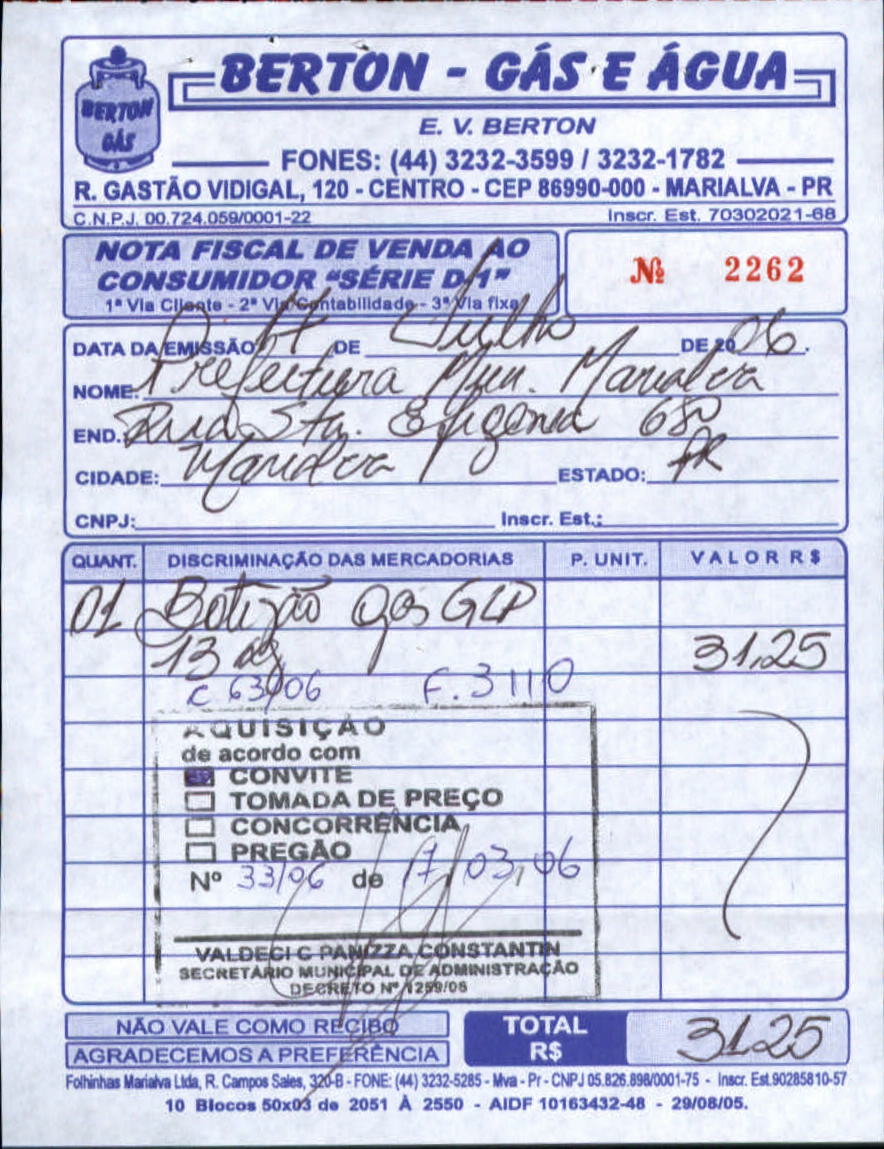 BERTON GÁS
BERTON - GÁS E ÁGUA
E. V. BERTON
FONES: (44) 3232-3599 / 3232-1782
R. GASTÃO VIDIGAL, 120 - CENTRO - CEP 86990-000 - MARIALVA - PR
C.N.P.J. 00.724.059/0001-22 Inscr. Est. 70302021-68
NOTA FISCAL DE VENDA AO
CONSUMIDOR “SÉRIE D-1”
1ª Via Cliente - 2ª Via Contabilidade - 3ª Via fixa
Nº 2262
DATA DA EMISSÃO 17 DE Julho DE 2006.
NOME: Prefeitura Mun. Marialva
END.: Rua Sta. Efigenia 680
CIDADE: Marialva ESTADO: PR
CNPJ: Inscr. Est.:
QUANT. DISCRIMINAÇÃO DAS MERCADORIAS P. UNIT. VALOR R$
01 Botijão gás GLP
13 kg 31,25
C 63/06 F. 3110
AQUISIÇÃO
de acordo com
CONVITE
TOMADA DE PREÇO
CONCORRÊNCIA
PREGÃO
Nº 33/06 de 17/03/06
VALDECI C PANIZZA CONSTANTIN
SECRETÁRIO MUNICIPAL DE ADMINISTRAÇÃO
DECRETO Nº 1259/06
NÃO VALE COMO RECIBO
AGRADECEMOS A PREFERÊNCIA
TOTAL R$ 31,25
Folhinhas Marialva Ltda, R. Campos Sales, 320-B - FONE: (44) 3232-5285 - Mva - Pr - CNPJ 05.826.898/0001-75 - Inscr. Est.90285810-57
10 Blocos 50x03 de 2051 À 2550 - AIDF 10163432-48 - 29/08/05.